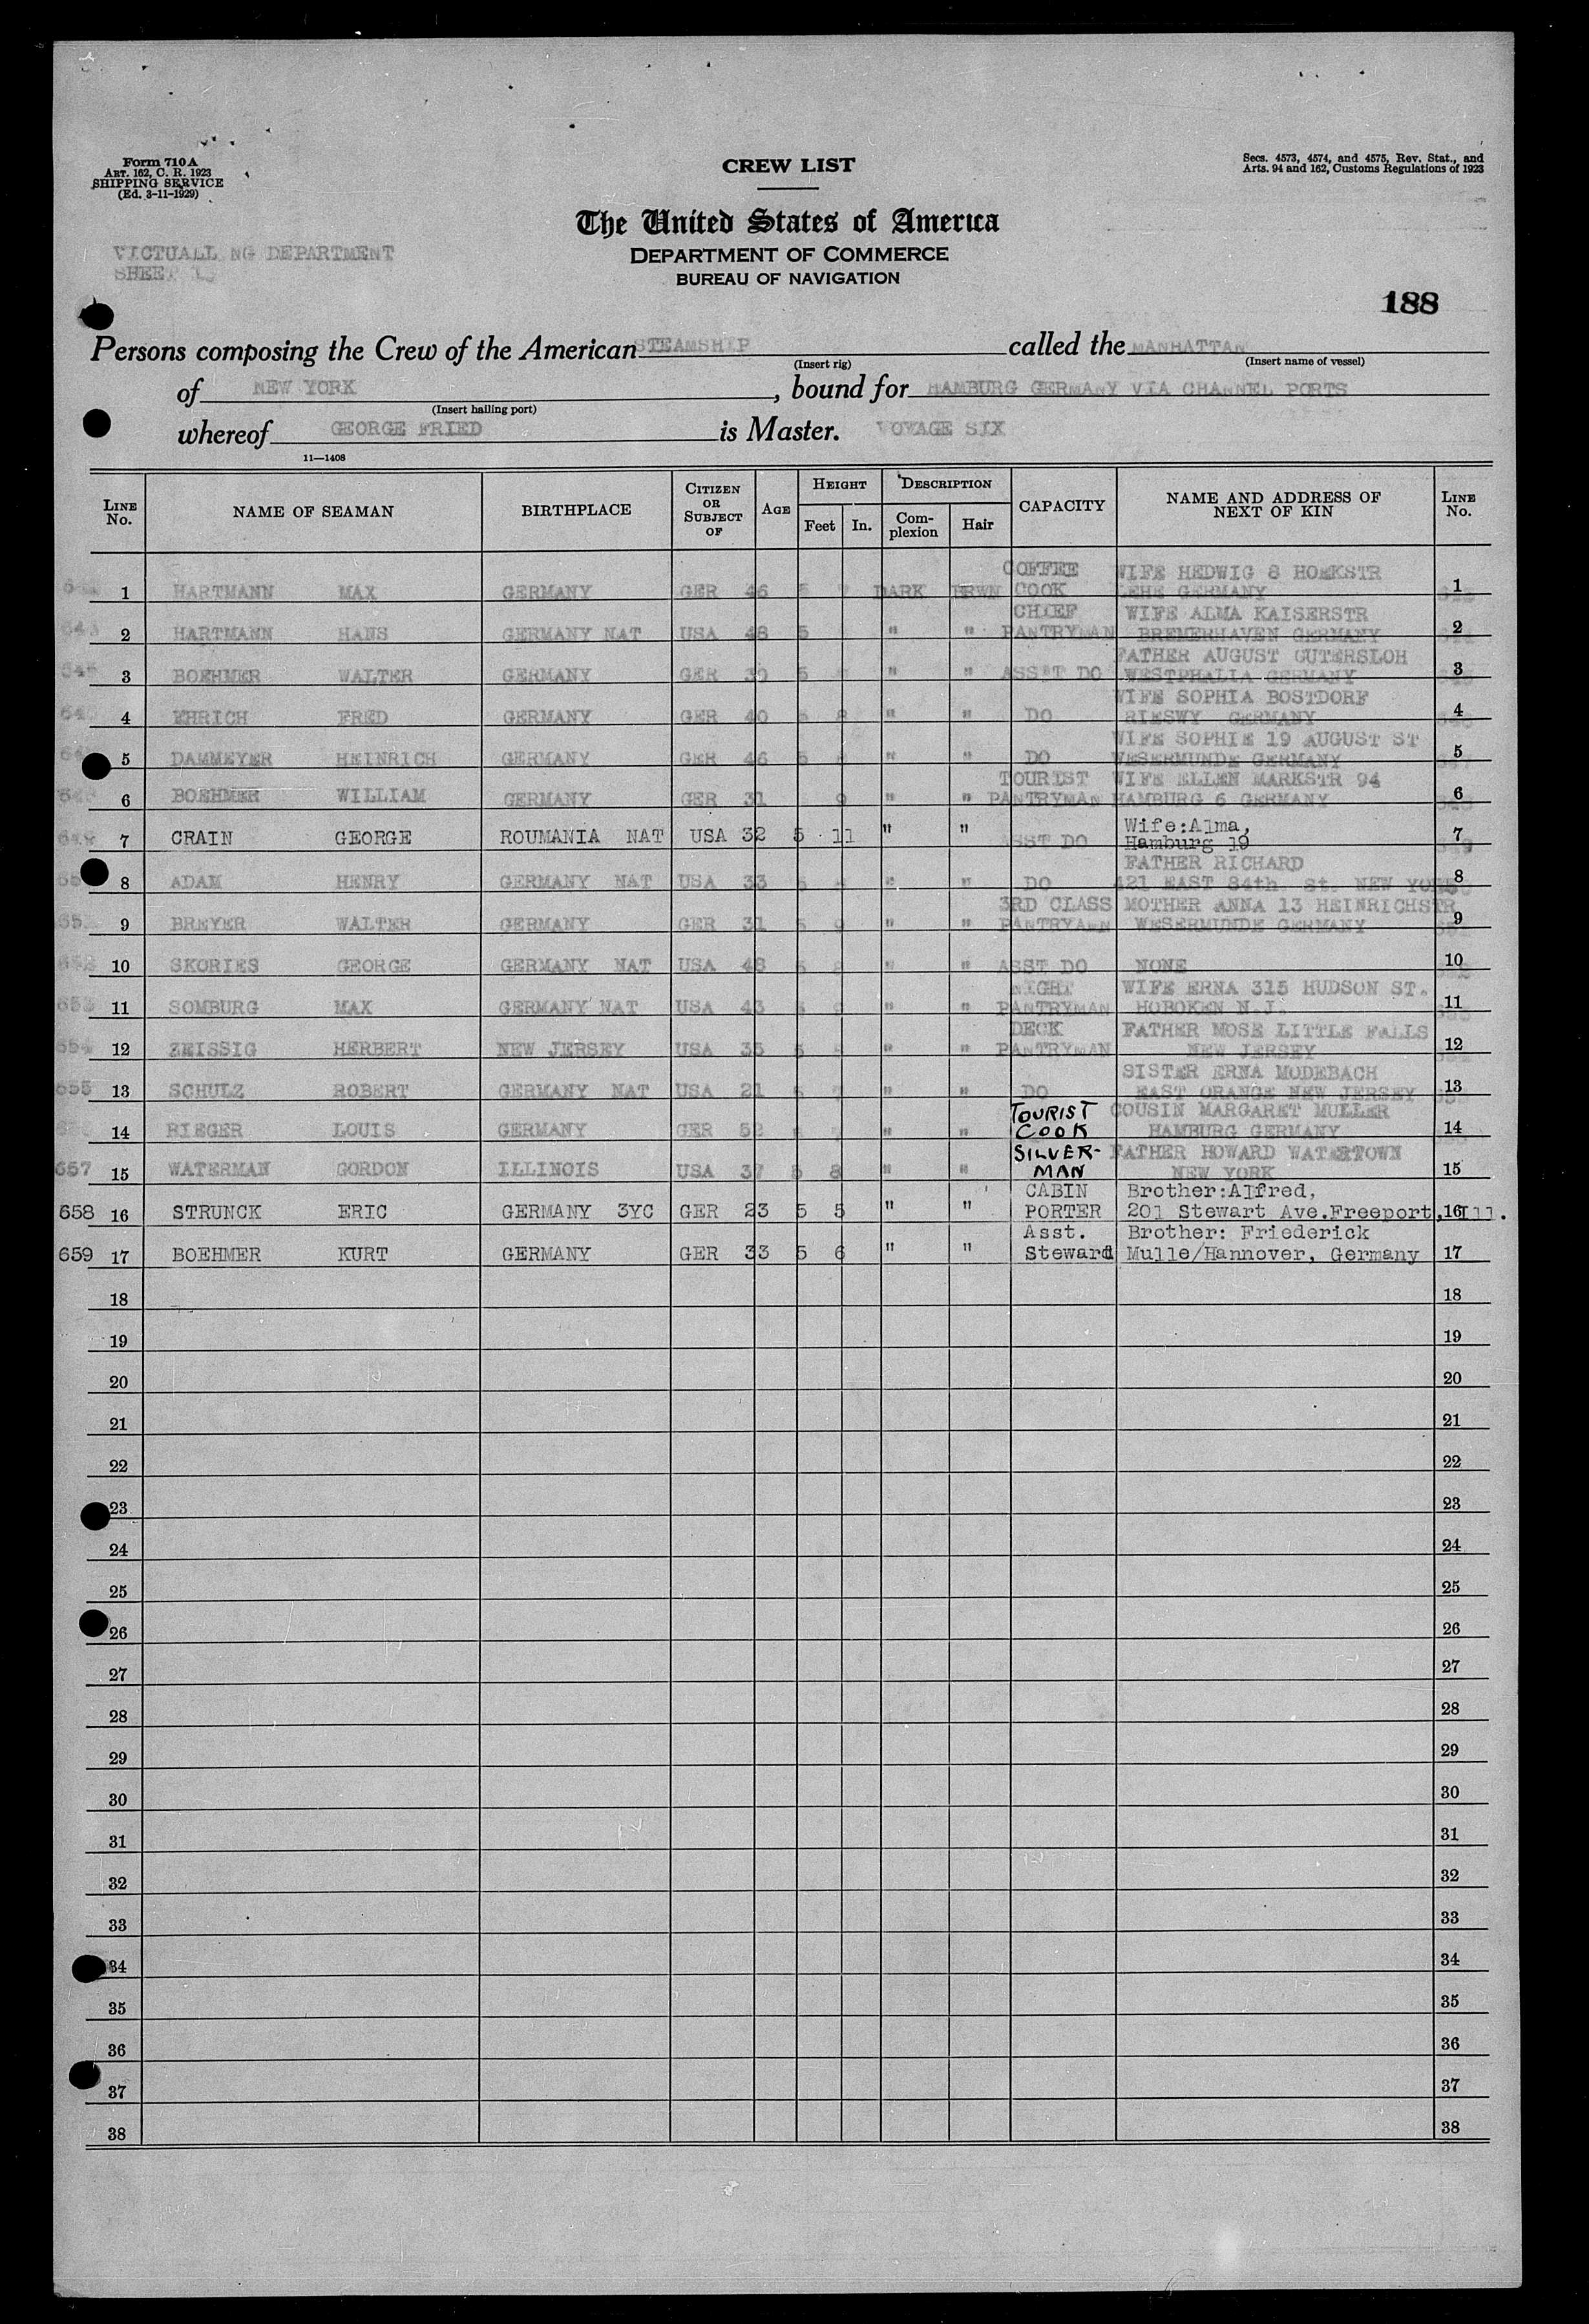 Form 710 A
ART. 162, C. R. 1923
SHIPPING SERVICE
(Ed. 3-11-1929)
CREW LIST
Secs. 4573, 4574, and 4575, Rev. Stat., and
Arts. 94 and 162, Customs Regulations of 1923
The United States of America
DEPARTMENT OF COMMERCE
BUREAU OF NAVIGATION
VICTUALL NG DEPARTMENT
SHEET
188
Persons composing the Crew of the American STEAMSHIP called the MANHATTAN
(Insert rig) (Insert name of vessel)
of NEW YORK, bound for HAMBURG GERMANY VIA CHANNEL PORTS
(Insert hailing port)
whereof GEORGE FRIED is Master. VOYAGE SIX
11—1408
LINE No. NAME OF SEAMAN BIRTHPLACE CITIZEN OR SUBJECT OF AGE HEIGHT Feet In. DESCRIPTION Complexion Hair CAPACITY NAME AND ADDRESS OF NEXT OF KIN LINE No.
COFFEE WIFE HEDWIG 8 HOEKSTR
1 HARTMANN MAX GERMANY GER 46 5 DARK BRWN COOK LEHE GERMANY 1
CHIEF WIFE ALMA KAISERSTR
2 HARTMANN HANS GERMANY NAT USA 48 5 " " PANTRYMAN BREMERHAVEN GERMANY 2
FATHER AUGUST GUTERSLOH
3 BOEHMER WALTER GERMANY GER 5 " " ASS'T DO WESTPHALIA GERMANY 3
WIFE SOPHIA BOSTDORF
4 EHRICH FRED GERMANY GER 40 5 8 " " DO RIESWY GERMANY 4
WIFE SOPHIE 19 AUGUST ST
5 DAMMEYER HEINRICH GERMANY GER 46 5 " " DO WESERMUNDE GERMANY 5
TOURIST WIFE ELLEN MARKSTR 94
6 BOEHMER WILLIAM GERMANY GER 31 9 " " PANTRYMAN HAMBURG 6 GERMANY 6
Wife:Alma,
7 CRAIN GEORGE ROUMANIA NAT USA 32 5 11 " " ASST DO Hamburg 19 7
FATHER RICHARD
8 ADAM HENRY GERMANY NAT USA 33 5 " " DO 421 EAST 84th. St. NEW YORK 8
3RD CLASS MOTHER ANNA 13 HEINRICHSTR
9 BREYER WALTER GERMANY GER 31 5 9 " " PANTRYAMN WESERMUNDE GERMANY 9
10 SKORIES GEORGE GERMANY NAT USA 48 5 8 " " ASST DO NONE 10
NIGHT WIFE ERNA 315 HUDSON ST.
653 11 SOMBURG MAX GERMANY NAT USA 43 5 " " PANTRYMAN HOBOKEN N.J. 11
DECK FATHER MOSE LITTLE FALLS
654 12 ZEISSIG HERBERT NEW JERSEY USA 35 5 " " PANTRYMAN NEW JERSEY 12
SISTER ERNA MODEBACH
655 13 SCHULZ ROBERT GERMANY NAT USA 21 5 7 " " DO EAST ORANGE NEW JERSEY 13
TOURIST COUSIN MARGARET MULLER
14 RIEGER LOUIS GERMANY GER 52 " " COOK HAMBURG GERMANY 14
SILVER- FATHER HOWARD WATERTOWN
657 15 WATERMAN GORDON ILLINOIS USA 37 5 8 " " MAN NEW YORK 15
CABIN Brother:Alfred,
658 16 STRUNCK ERIC GERMANY 3YC GER 23 5 5 " " PORTER 201 Stewart Ave.Freeport,Ill. 16
Asst. Brother: Friederick
659 17 BOEHMER KURT GERMANY GER 33 5 6 " " Steward Mulle/Hannover, Germany 17
18 18
19 19
20 20
21 21
22 22
23 23
24 24
25 25
26 26
27 27
28 28
29 29
30 30
31 31
32 32
33 33
34 34
35 35
36 36
37 37
38 38